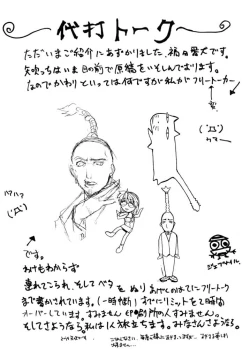 代打トーク
ただいまご紹介にあずかりました、福田愛犬です。
矢吹っちはいま目の前で原稿をいそしんでおります。
なのでかわりといっては何ですが私がフリートーカー
('Д')
ハァハァ
('Д`)
です。
わけもわからず
連れてこられ、そしてベタ をぬり あげくのはてにフリートーク
まで書かされています。(一時間) すでにリミットを2時間
オーバーしています。すみません印刷所の人すみません。
そしてさようなら私は1人旅立ちます。みなさんさようなら。